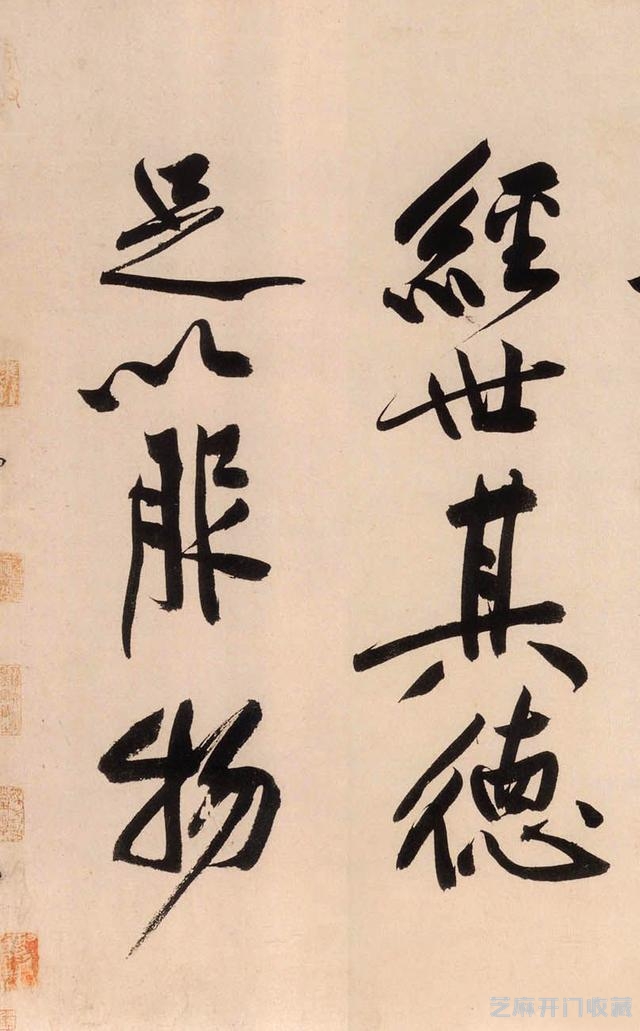 經世其德
足以服物
芝麻开门收藏